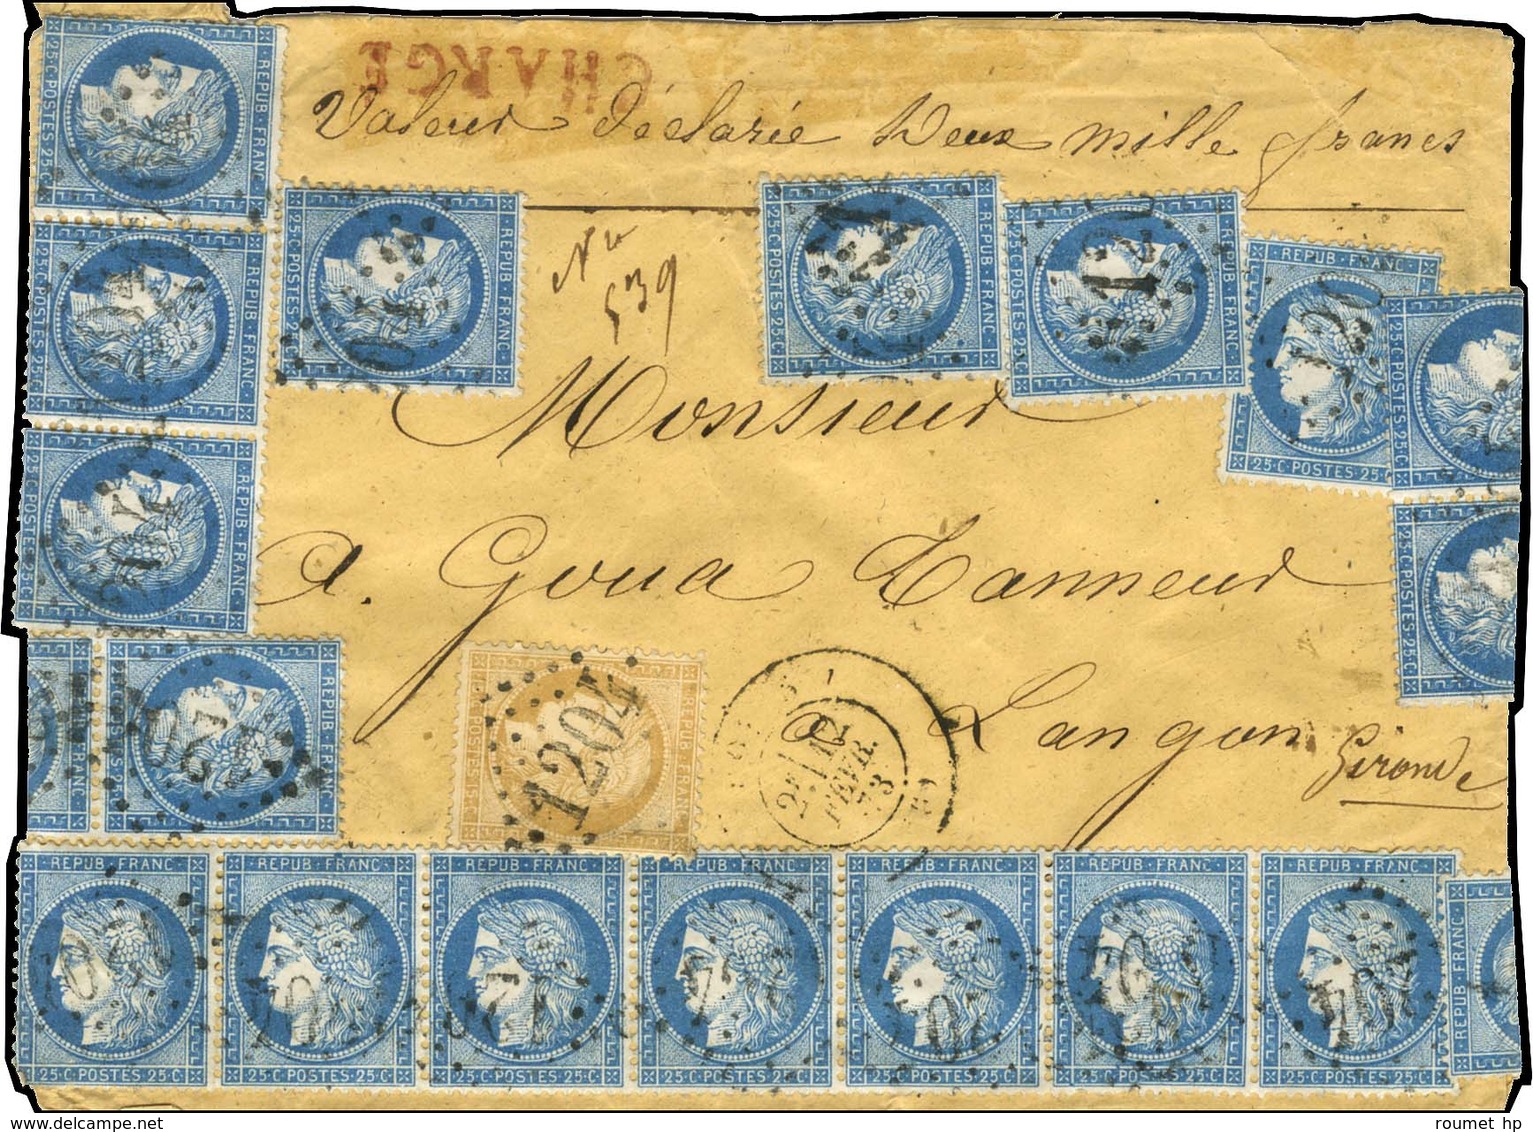 CHARGE
Valeur déclarée Deux mille francs
No
539
Monsieur
A. Goua Tanneur
a Langon
Gironde
1204
2E 12
FEVR.
73
REPUB·FRANC
25·C·POSTES·25·C
REPUB·FRANC
15·C·POSTES·15·C
roumet hp